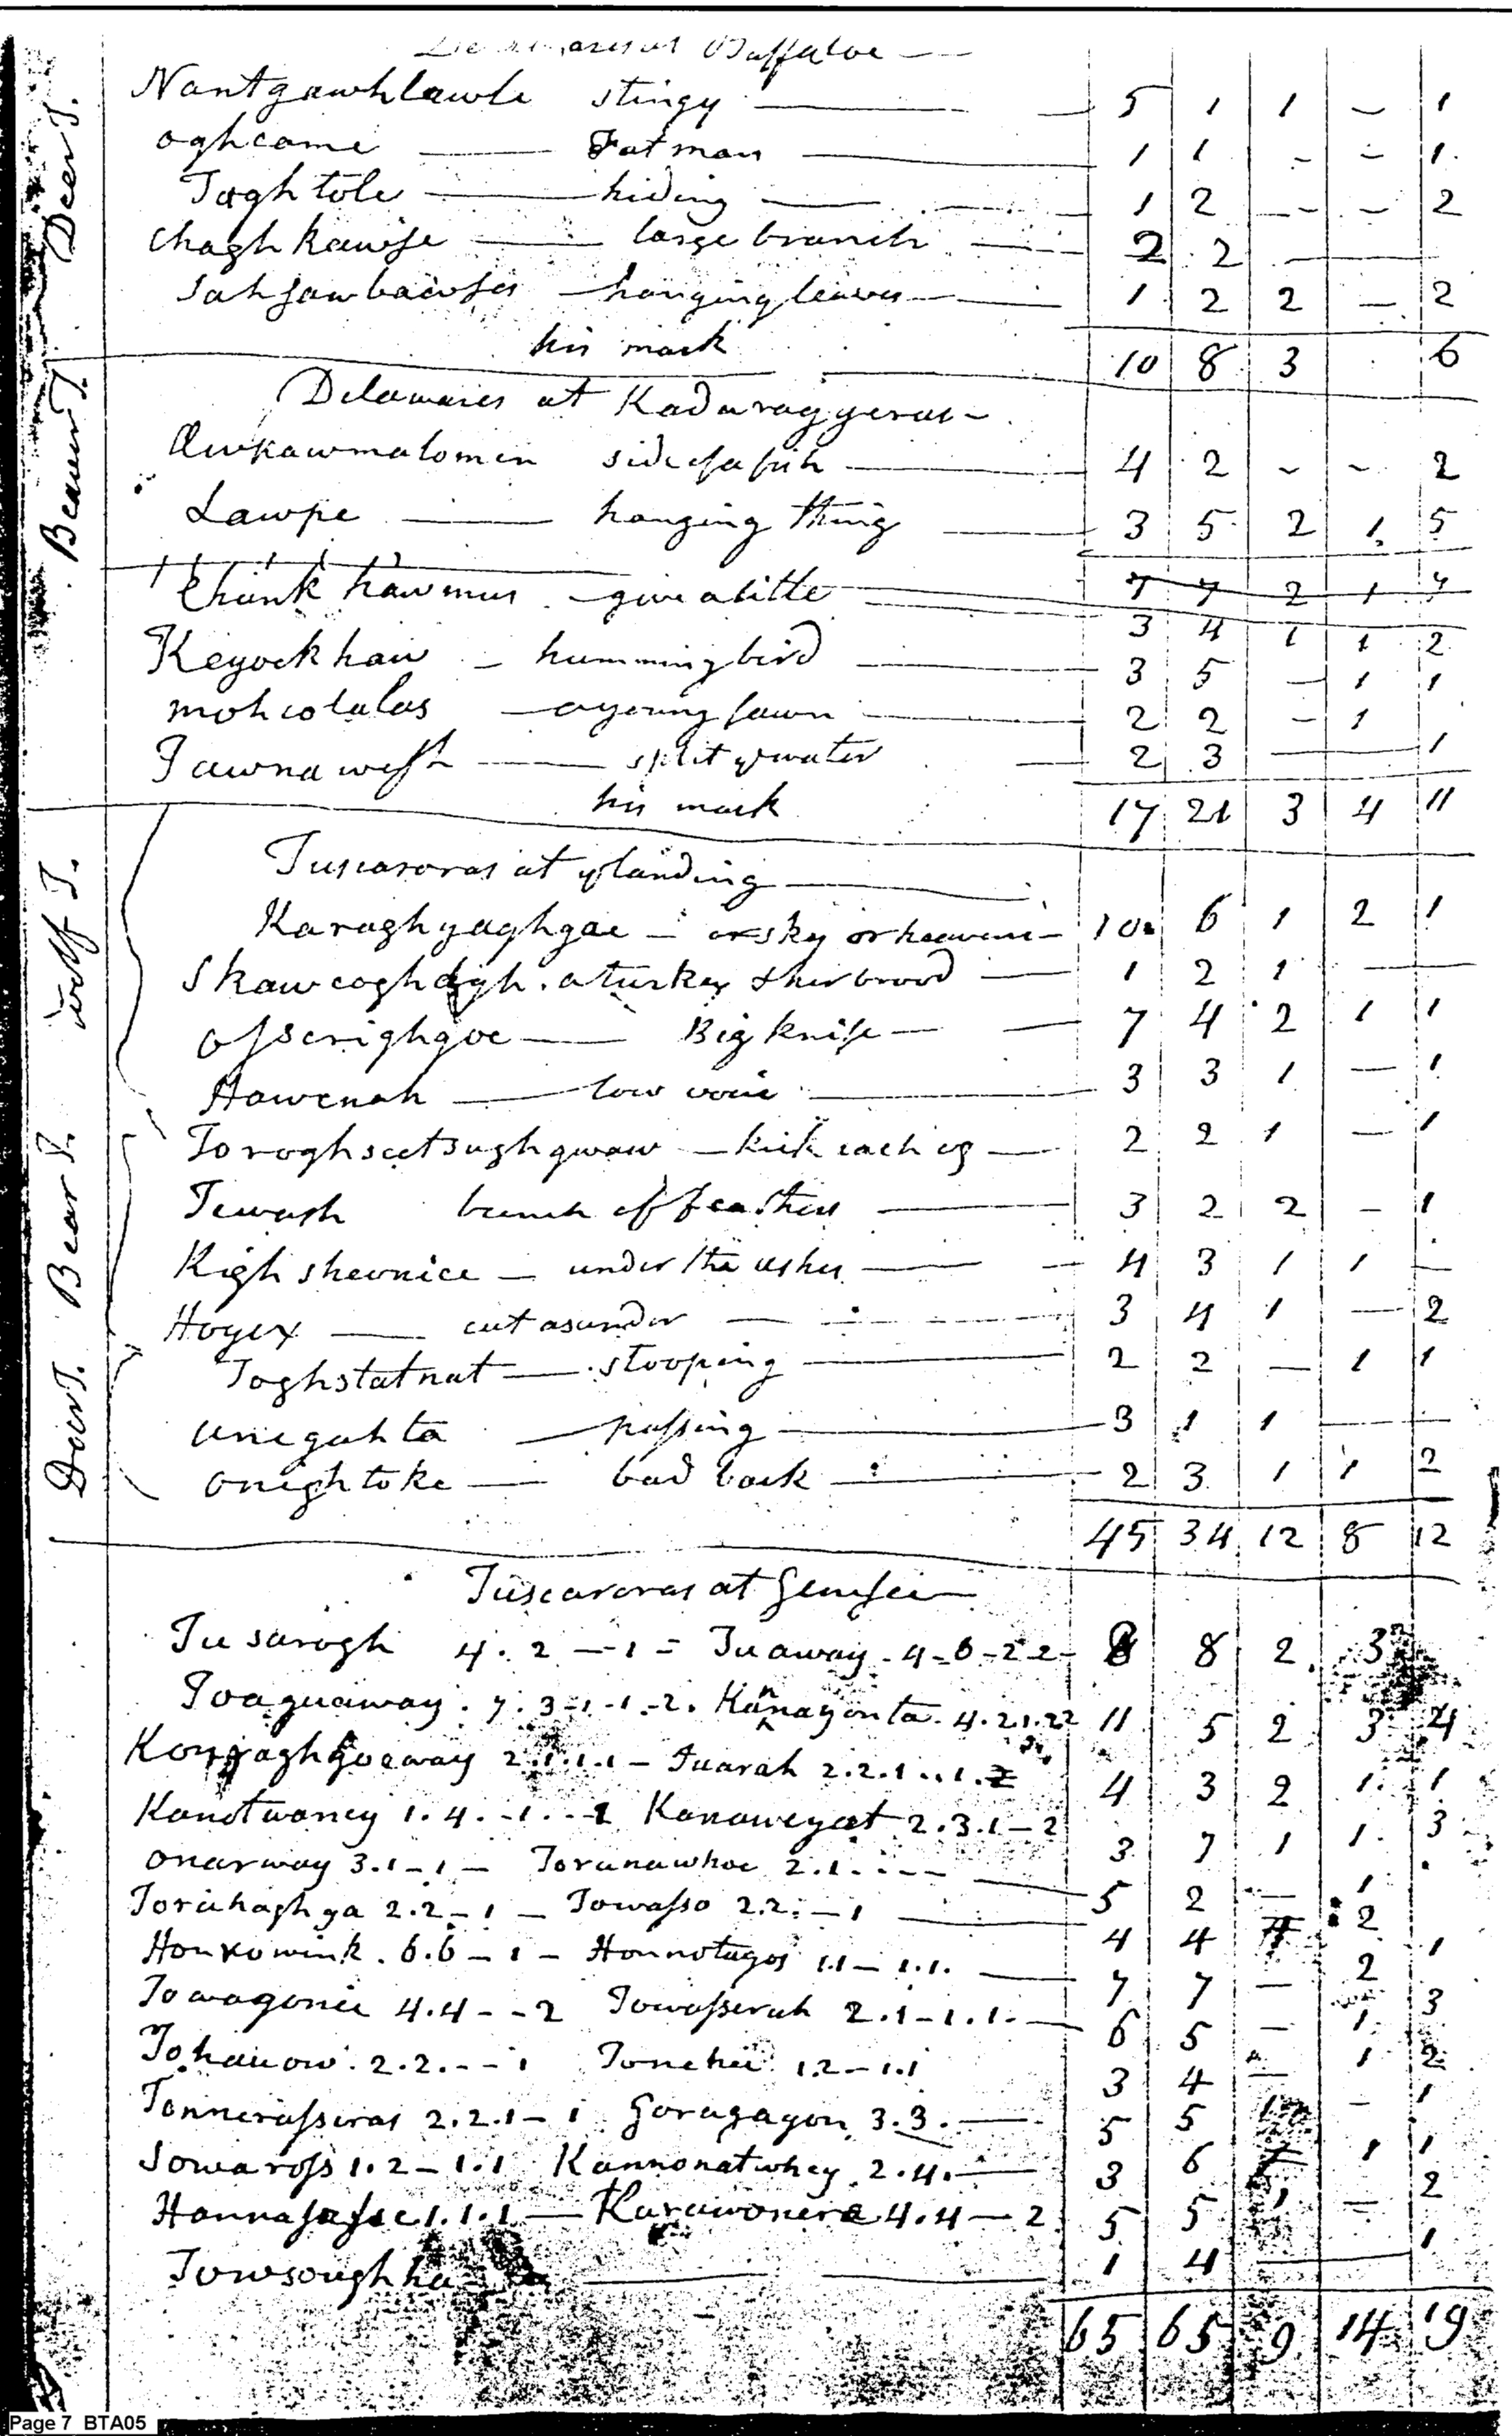 Delawares at Buffaloe —
Nantgawhlawle stingy — 5 1 1 – 1
oghcame — Fatman — 1 1 - - 1
Toghtole — hiding — 1 2 - - 2
Chaghkawise — large branch — 2 2 —
— hanging leaves — 1 2 2 — 2
his mark 10 8 3 6
Delawares at
side of a fish — 4 2 - - 2
Lawpe — hanging thing — 3 5 2 1 5
7 7 2 1 7
Chunk hawmus - give a little — 3 4 1 1 2
Keyockhaw - hummingbird — 3 5 — 1 1
mohcolalas — a young fawn — 2 2 - 1
Tawnawesh — split ye water — 2 3 — 1
his mark 17 21 3 4 11
Tuscaroras at ye landing —
Karaghyaghgae - or sky or heavens - 10 6 1 2 1
a turkey & her brood — 1 2 1 —
Osserighgoe — Big knife — 7 4 2 1 1
Hawenah — low voice — 3 3 1 — 1
Toroghseetsughgwaw — kick each eg — 2 2 1 — 1
Tewash bunch of feathers — 3 2 2 - 1
Kighshewnice — under the ashes — 4 3 1 1 —
Hoyex — cut asunder — 3 4 1 — 2
Toghstatnat — stooping — 2 2 — 1 1
Unegahta — passing — 3 1 1 — —
Onightoke — bad back — 2 3 1 1 2
45 34 12 8 12
Tuscaroras at Genesee
Tusarogh 4. 2 — 1 = Tuaway - 4-6-2 2- 8 8 2 3
Toaguaway. 7. 3-1-1-2. Kannagonta. 4.2.1.22 11 5 2 3 4
2.1.1.1 — Tuarah 2.2.1..1.2 4 3 2 1 1
Kanotwaney 1.4.-1.-1 Kanaweyaet 2.3.1-2 3 7 1 1 3
Onarway 3.1-1 — Toranawhoe 2.1. — 5 2 — 1
Toruhaghga 2.2-1 — Towasso 2.2.-1 — 4 4 2
Honkowink. 6.6-1 — Honnotagos 1.1-1.1. — 7 7 — 2 1
Towagonee 4.4--2 Towasserah 2.1-1.1. — 6 5 — 1 3
Tohauow. 2.2.--1 Tonehee 1.2-1.1 3 4 — 1 2
Tonnerasseras 2.2.1-1 Goragagon 3.3. — 5 5 — 1
Sowaross 1.2-1.1 Kannonatwhey 2.4. — 3 6 1 1
1.1.1 — Karawonera 4.4—2 5 5 — 2
Towsoughha — 1 4 — 1
65 65 9 14 19
Deer T.
Beaver T.
Wolf T.
Bear T.
Page 7 BTA05